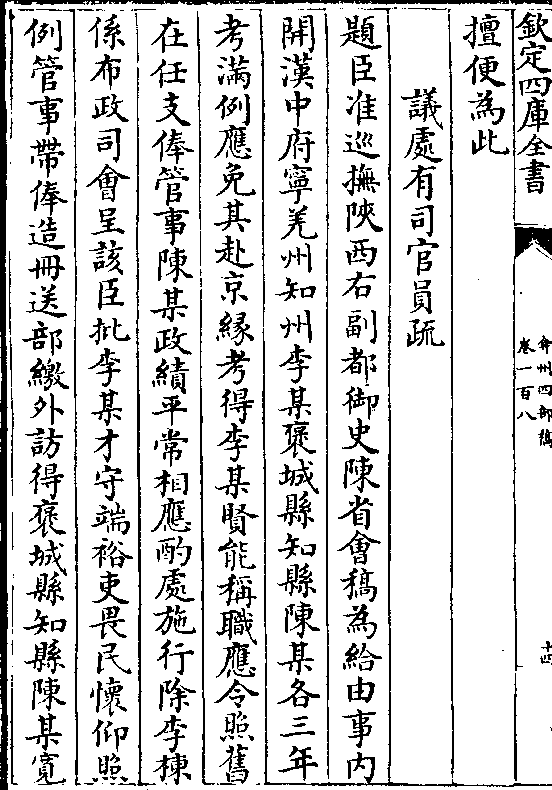 欽定四庫全書
弇州四部稿
卷一百八
十四
擅便為此
議處有司官員疏
題臣准巡撫陝西右副都御史陳省會稿為給由事內
開漢中府寧羌州知州李某褒城縣知縣陳某各三年
考滿例應免其赴京緣考得李某賢能稱職應令照舊
在任支俸管事陳某政績平常相應酌處施行除李棟
係布政司會呈該臣批李某才守端裕吏畏民懷仰照
例管事帶俸造冊送部繳外訪得褒城縣知縣陳某寬